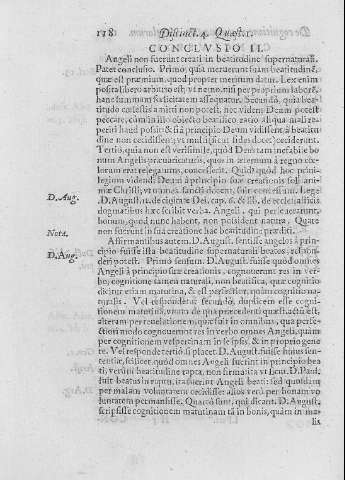 118 Distinct. 4. Quæst. 1.
CONCLVSIO II.
Angeli non fuerunt creati in beatitudine supernaturali.
Patet conclusio. Primo, quia meruerunt suam beatitudinē,
quæ est præmium, quod propter meritum datur. Lex enim
posita libero arbitrio est, vt nemo, nisi per proprium laborē,
hanc summam fœlicitatem assequatur. Secundò, quia bea-
titudo cœlestis amitti non potest, nec videns Deum potest
peccare, cùm in illo obiecto beatifico ratio aliqua mali re-
periri haud possit: & si à principio Deum vidissent, à beatitu
dine non cecidissent, vt multi (sicut fides docet) ceciderunt.
Tertiò, quia non est verisimile, quòd Deus tam inefabile bo
num Angelis præuaricaturis, quos in æternum à regno cœ-
lorum erat relegaturus, concesserit. Quòd quòd hoc priui-
legium videndi Deum à principio suæ creationis soli ani-
mæ Christi, vt omnes sancti docent, fuit concessum. Lege
D. Aug. D. August. 11. de ciuitate Dei, cap. 6. & lib. de ecclesiasticis
dogmatibus hæc scribit verba. Angeli, qui perseuerarunt,
bonum, quod nunc habent, non possident natura. Quare
Nota. non fuerunt in sua creatione hac beatitudine præditi.
Affirmantibus autem, D. August. sensisse angelos à prin-
D. Aug. cipio fuisse illa beatitudine supernaturali beatos, respon-
deri potest. Primo sensum D. August. fuisse quòd omnes
Angeli à principio suæ creationis, cognouerunt res in ver-
bo, cognitione tamen naturali, non beatifica, quæ cognitio
dicitur etiam matutina, & est perfectior, quàm cognitio na-
turalis. Vel respondetur secundò, duplicem esse cogni-
tionem matutinā, vnam de qua præcedenti quæst. actū est,
alteram per reuelationem, quæ fuit in omnibus, qua perfe-
ctiori modo cognouerunt res in verbo omnes Angeli, quàm
per cognitionem vespertinam in se ipsis, & in proprio gene
re. Vel respondetur tertiò si placet. D. August. fuisse huius sen-
tentiæ, scilicet quòd omnes Angeli fuerint in principio bea
ti, verùm beatitudine rapta, non firmata: vt sicut D. Paul.
fuit beatus in raptu, ita fuerint Angeli beati: sed quosdam
per malam voluntatem cecidisse: alios verò per bonam vo
luntatem permansisse. Quartò sunt, qui dicant, D. August.
scripsisse cognitionem matutinam tā in bonis, quàm in ma-
lis